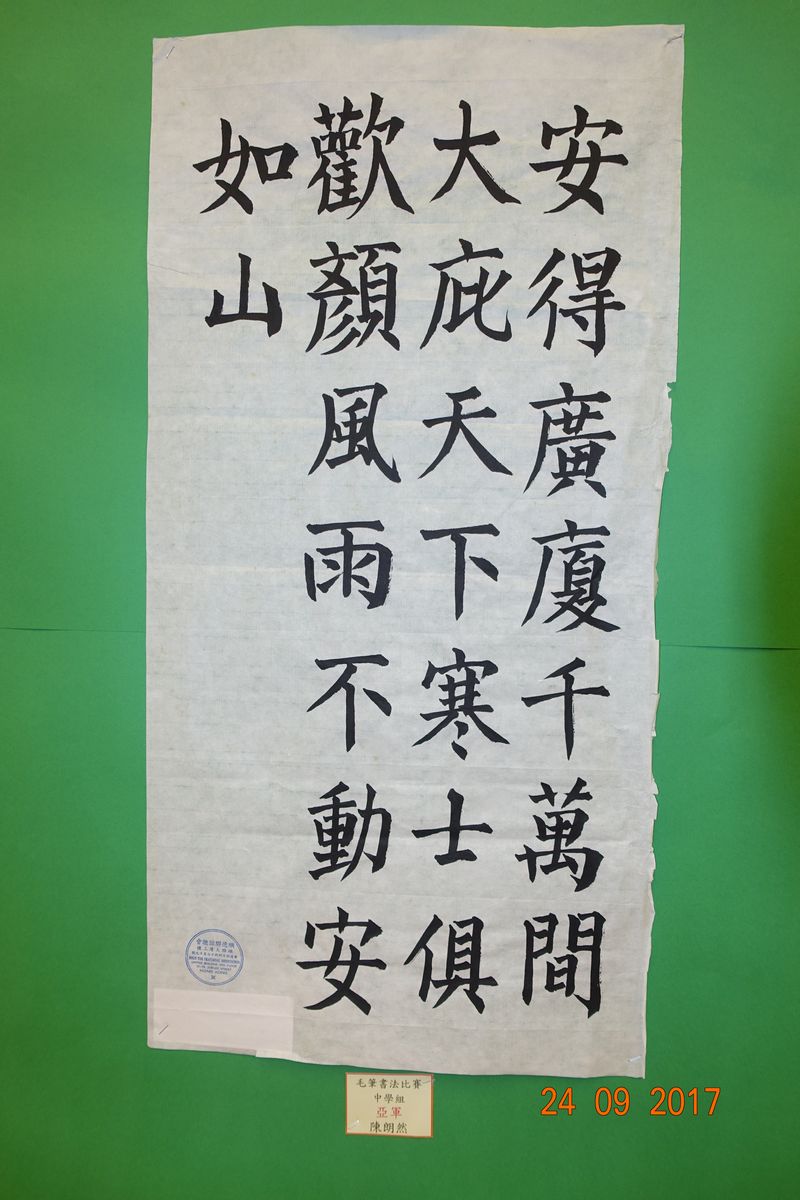 安得廣廈千萬間
大庇天下寒士俱
歡顏風雨不動安
如山
順德聯誼總會
毛筆書法比賽
中學組
亞軍
陳朗然
24 09 2017